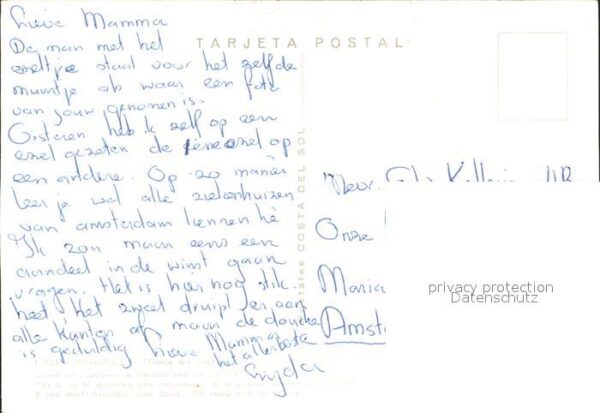 Lieve Mamma
TARJETA POSTAL
De man met het
ezeltje staat voor het zelfde
muurtje als waar een foto
van jouw genomen is.
Gisteren heb ik zelf op een
ezel gezeten de ezel op
een andere. Op zo manier
leer je wel alle ziekenhuizen
van amsterdam kennen hè
Ik zou maar eens een
aandeel in de winst gaan
vragen. Het is hier nog stik
heet. Het zweet druipt er aan
alle kanten af maar de douche
is geduldig Lieve Mamma
het allerbeste
COSTA DEL SOL
Mevr.
Onze
Maria
Amst
privacy protection
Datenschutz